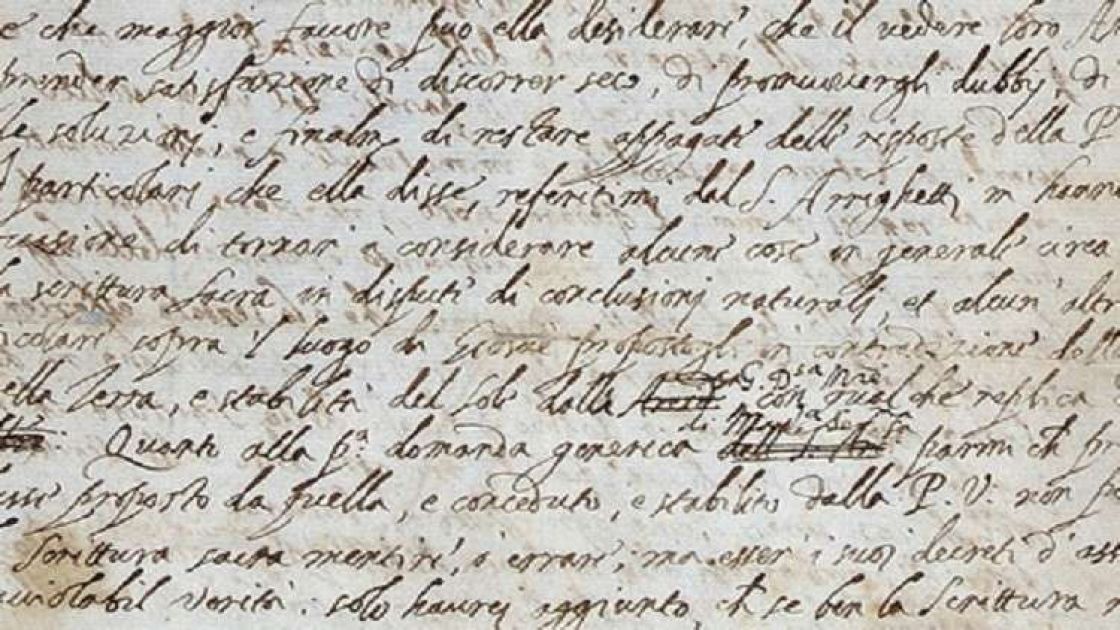 e che maggior favore può ella desiderare, che il vedere loro A
prender satisfazione di discorrer seco, di promuovergli dubbij, di
le soluzioni, e finalm di restare appagate delle risposte della P
I particolari che ella disse, referitimi dal S. Arrighetti m hann
casione di tornar a considerare alcune cose in generale circa
la scrittura sacra in dispute di conclusioni naturali, et alcun' altr
icolare sopra 'l luogo di Giosuè propostogli in contradizione dell
ella Terra, e stabilità del Sole dalla G. D.sa M con qualche replica
Quanto alla p.a domanda generica di M S parmi ch pr
proposto da quella, e conceduto, e stabilito dalla P. V. non p
Scrittura sacra mentire, o errare, ma esser i suoi decreti d' ass
inviolabil verità. solo haurei aggiunto, ch se ben la Scrittura